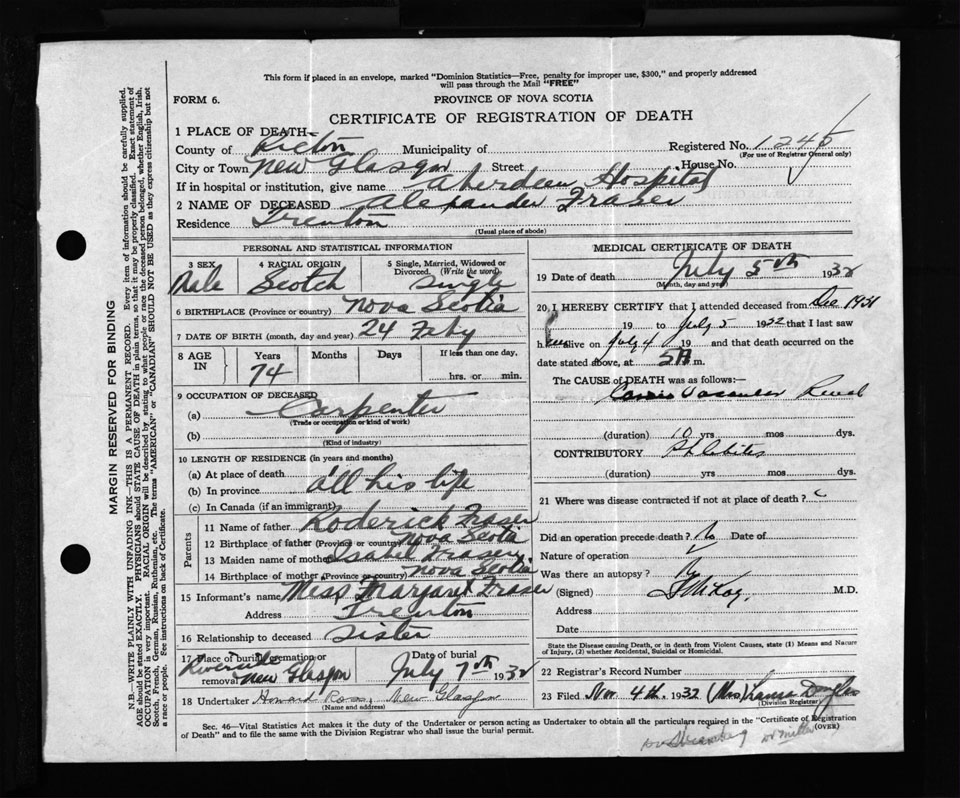 This form if placed in an envelope, marked "Dominion Statistics—Free, penalty for improper use, $300," and properly addressed
will pass through the Mail "FREE"
FORM 6.
PROVINCE OF NOVA SCOTIA
CERTIFICATE OF REGISTRATION OF DEATH
1 PLACE OF DEATH—
County of Pictou Municipality of Registered No.
(For use of Registrar General only)
City or Town New Glasgow Street House No.
If in hospital or institution, give name Aberdeen Hospital
2 NAME OF DECEASED Alexander Fraser
Residence Trenton
(Usual place of abode)
PERSONAL AND STATISTICAL INFORMATION
3 SEX 4 RACIAL ORIGIN 5 Single, Married, Widowed or
Divorced. (Write the word)
Male Scotch Single
6 BIRTHPLACE (Province or country) Nova Scotia
7 DATE OF BIRTH (month, day and year) 24 Feby
8 AGE IN Years Months Days If less than one day,
74 hrs. or min.
9 OCCUPATION OF DECEASED
(a) Carpenter
(Trade or occupation or kind of work)
(b)
(Kind of industry)
10 LENGTH OF RESIDENCE (in years and months)
(a) At place of death
(b) In province all his life
(c) In Canada (if an immigrant)
Parents
11 Name of father Roderick Fraser
12 Birthplace of father (Province or country) Nova Scotia
13 Maiden name of mother Isabel Fraser
14 Birthplace of mother (Province or country) Nova Scotia
15 Informant's name Miss Margaret Fraser
Address Trenton
16 Relationship to deceased Sister
17 Place of burial, cremation or
removal Riverside New Glasgow
Date of burial
July 7th 1932
18 Undertaker Howard Ross, New Glasgow
(Name and address)
MEDICAL CERTIFICATE OF DEATH
19 Date of death July 5th 1932
(Month, day and year)
20 I HEREBY CERTIFY that I attended deceased from Dec 1931
19 to July 5 1932 that I last saw
him alive on July 4 19 and that death occurred on
date stated above, at 5 A m.
The CAUSE of DEATH was as follows:—
Vascular Renal
(duration) 10 yrs mos dys.
CONTRIBUTORY Phlebitis
(duration) yrs mos dys.
21 Where was disease contracted if not at place of death?
Did an operation precede death? No Date of
Nature of operation
Was there an autopsy?
(Signed) M.D.
Address
Date
State the Disease causing Death, or in death from Violent Causes, state (1) Means and Nature
of Injury, (2) whether Accidental, Suicidal or Homicidal.
22 Registrar's Record Number
23 Filed Nov. 4th. 1932 (Mrs) Laura Douglas
(Division Registrar)
Sec. 46—Vital Statistics Act makes it the duty of the Undertaker or person acting as Undertaker to obtain all the particulars required in the "Certificate of Registration
of Death" and to file the same with the Division Registrar who shall issue the burial permit.
(OVER)
MARGIN RESERVED FOR BINDING
N.B.—WRITE PLAINLY WITH UNFADING INK—THIS IS A PERMANENT RECORD. Every item of information should be carefully supplied.
AGE should be stated EXACTLY. PHYSICIANS should STATE CAUSE OF DEATH in plain terms, so that it may be properly classified. Exact statement of
OCCUPATION is very important. RACIAL ORIGIN will be described by stating to what people or race the deceased person belonged, whether English, Irish,
Scotch, French, German, Russian, Ruthenian, etc. The terms "AMERICAN" or "CANADIAN" SHOULD NOT BE USED as they express citizenship but not
a race or people. See instructions on back of Certificate.